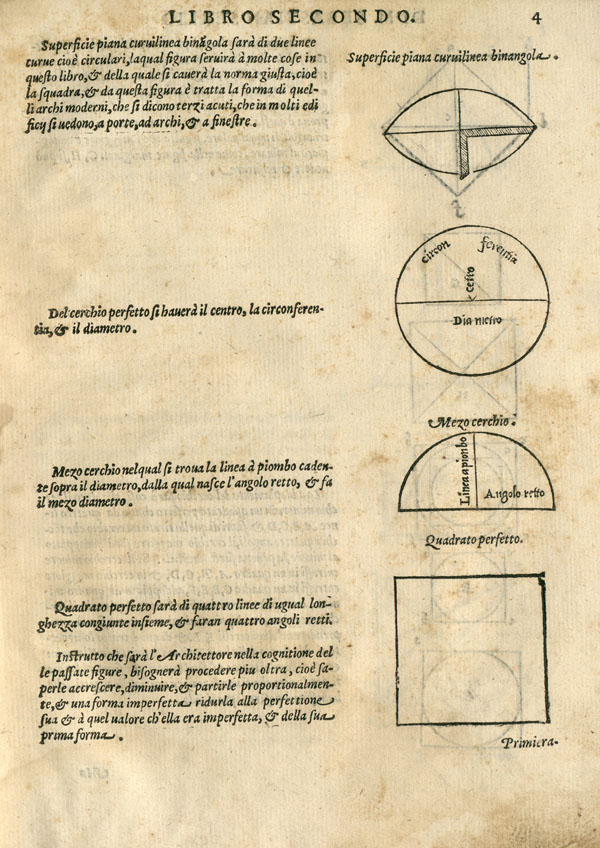 LIBRO SECONDO. 4
Superficie piana curuilinea binãgola sarà di due linee
curue cioè circulari, laqual figura seruirà à molte cose in
questo libro, & della quale si cauerà la norma giusta, cioè
la squadra, & da questa figura è tratta la forma di quel-
li archi moderni, che si dicono terzi acuti, che in molti edi
ficij si uedono, a porte, ad archi, & a finestre.
Superficie piana curuilinea binangola.
Del cerchio perfetto si hauerà il centro, la circonferen-
tia, & il diametro.
circon ferentia
cẽtro
Dia metro
Mezo cerchio nel qual si troua la linea à piombo caden-
te sopra il diametro, dalla qual nasce l'angolo retto, & fa
il mezo diametro.
Mezo cerchio.
Linea a piombo
Angolo retto
Quadrato perfetto.
Quadrato perfetto sarà di quattro linee di ugual lon-
ghezza congiunte insieme, & faran quattro angoli retti.
Instrutto che sarà l'Architettore nella cognitione del
le passate figure, bisognerà procedere piu oltra, cioè sa-
perle accrescere, diminuire, & partirle proportionalmen-
te, & una forma imperfetta ridurla alla perfettione
sua & à quel ualore ch'ella era imperfetta, & della sua
prima forma.
Primiera-